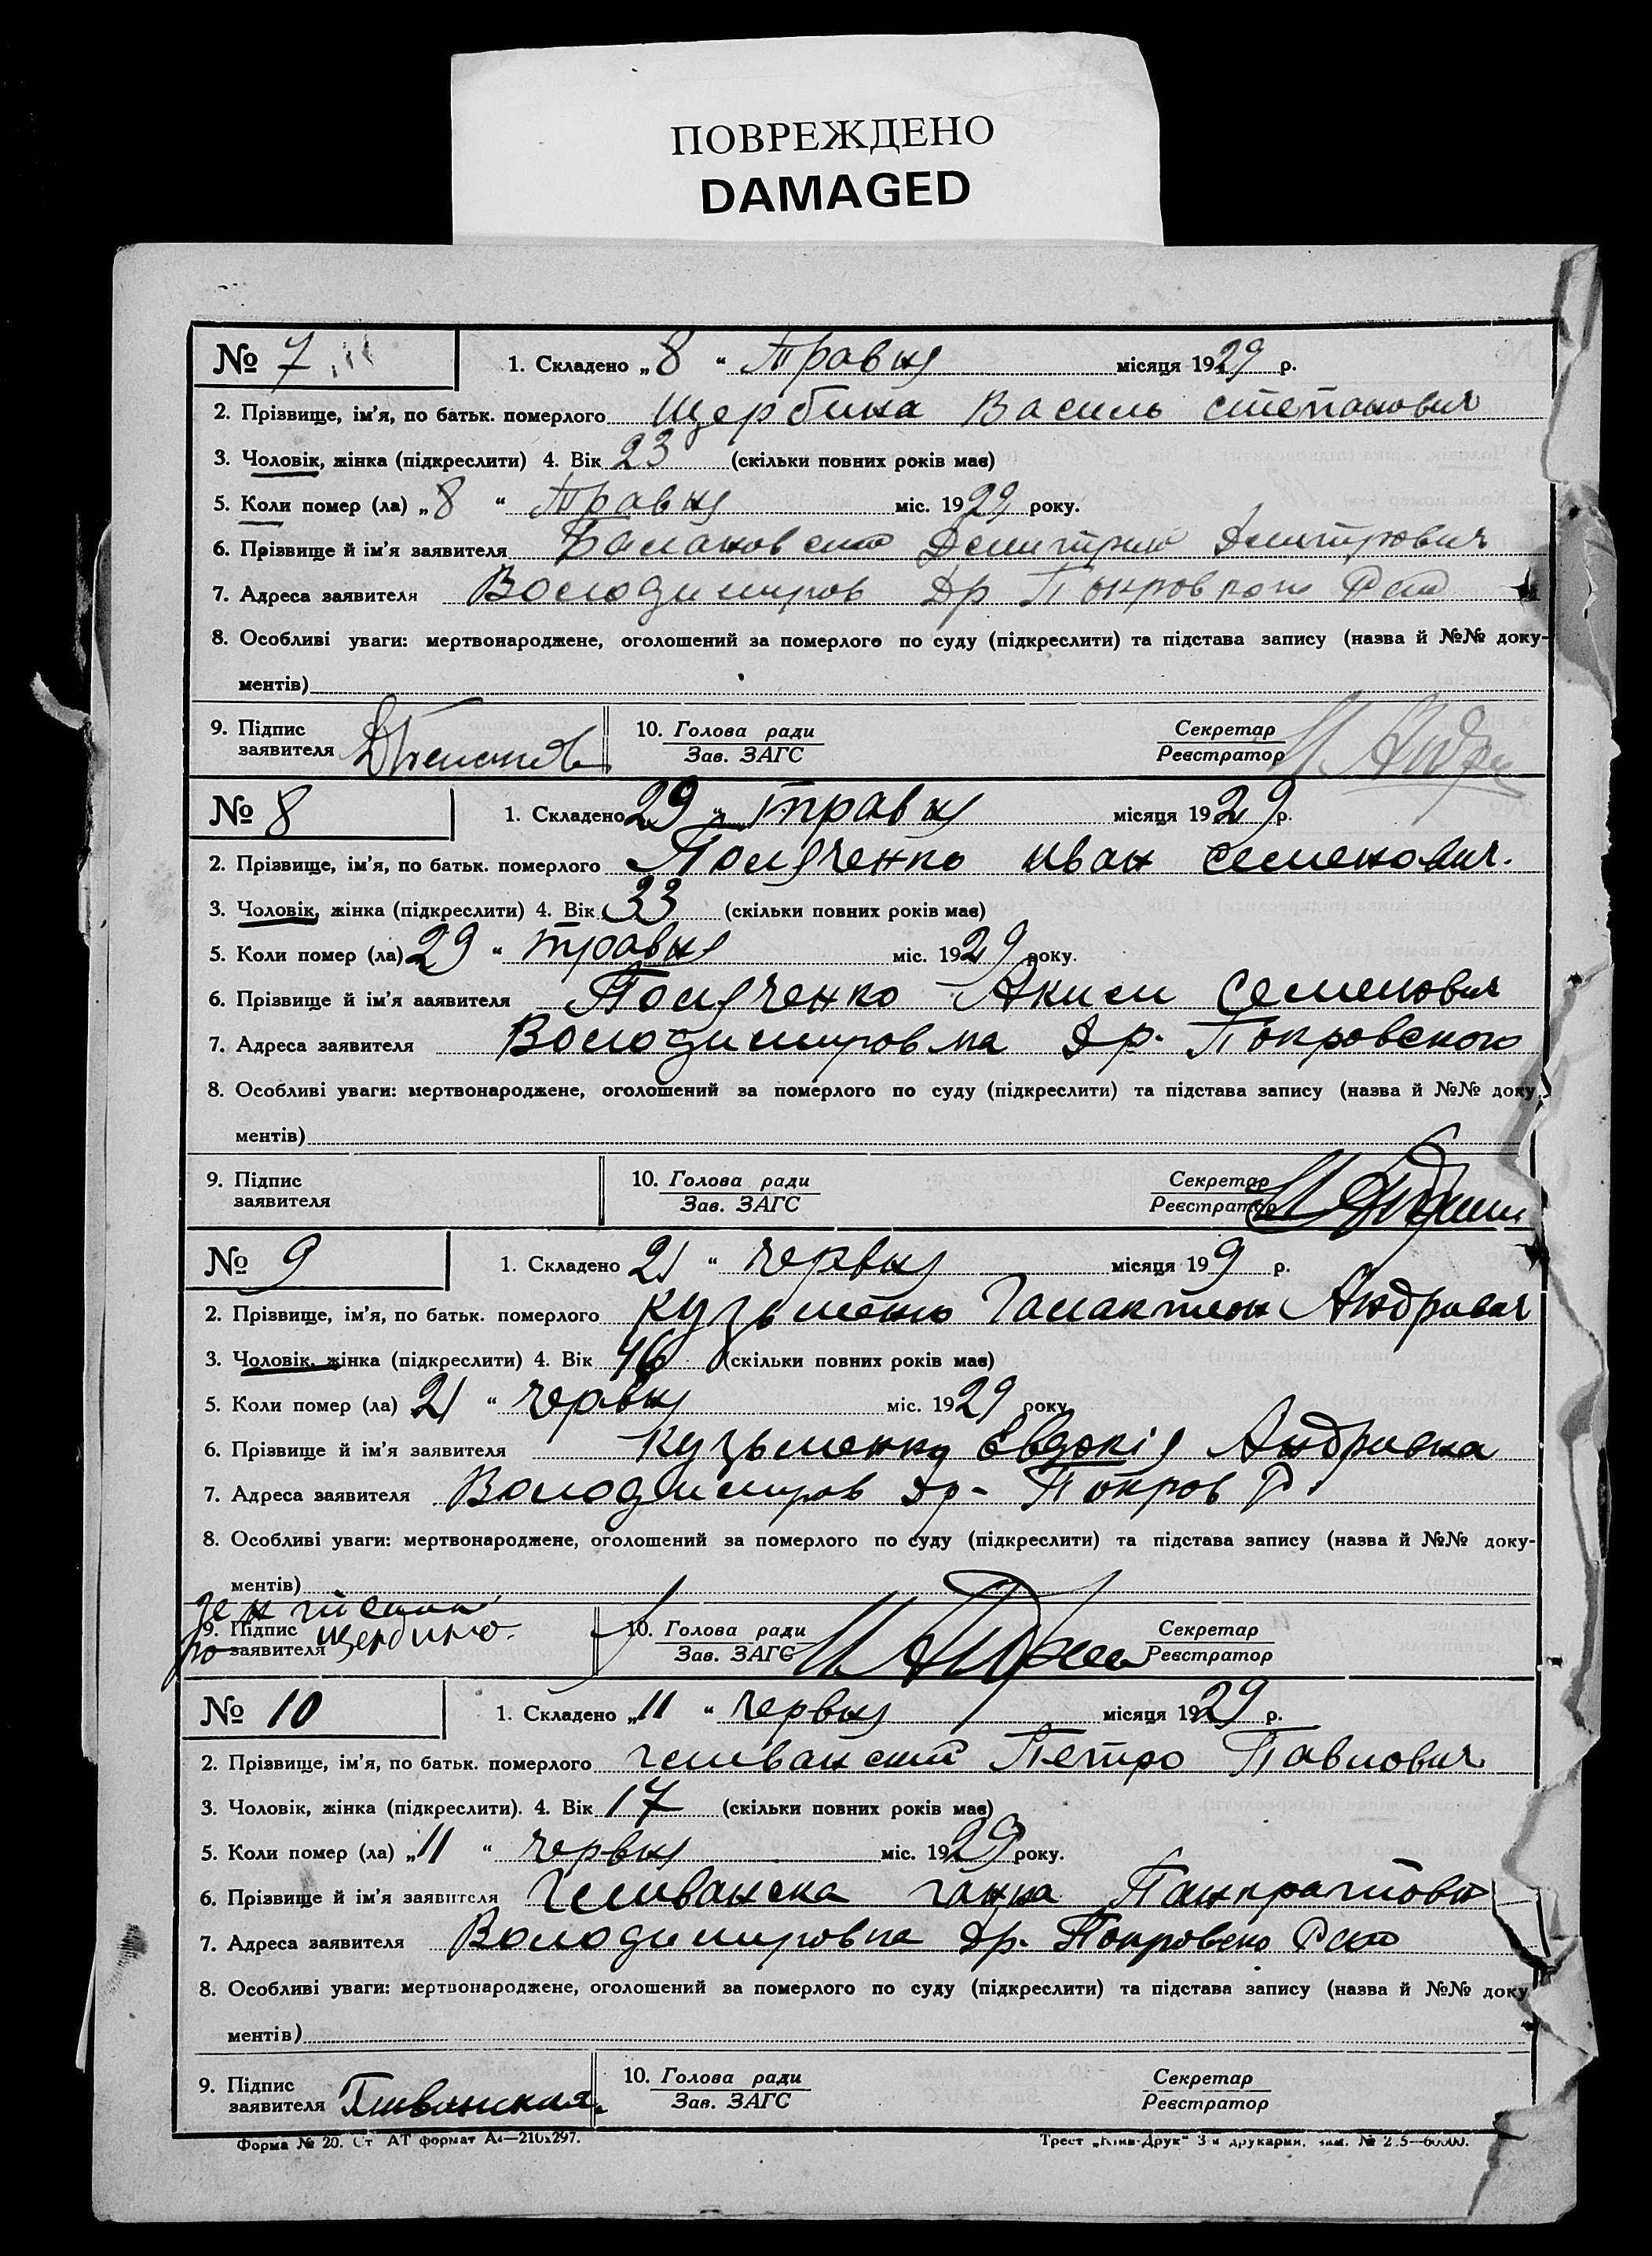 ПОВРЕЖДЕНО
DAMAGED
№ 7 1. Складено „ 8 “ Травня місяця 1929 р.
2. Прізвище, ім’я, по батьк. померлого Щербина Василь Степанович
3. Чоловік, жінка (підкреслити) 4. Вік 23 (скільки повних років має)
5. Коли помер (ла) „ 8 “ Травня міс. 1929 року.
6. Прізвище й ім’я заявителя Дмитрий Дмитрович
7. Адреса заявителя Володимиров Др Покровского
8. Особливі уваги: мертвонароджене, оголошений за померлого по суду (підкреслити) та підстава запису (назва й №№ доку-
ментів)
9. Підпис заявителя 10. Голова ради Секретар
Зав. ЗАГС Реєстратор
№ 8 1. Складено 29 “ травня місяця 1929 р.
2. Прізвище, ім’я, по батьк. померлого Иван Семенович.
3. Чоловік, жінка (підкреслити) 4. Вік 33 (скільки повних років має)
5. Коли помер (ла) 29 “ травня міс. 1929 року.
6. Прізвище й ім’я заявителя Аким Семенович
7. Адреса заявителя Володимировка Др. Покровского
8. Особливі уваги: мертвонароджене, оголошений за померлого по суду (підкреслити) та підстава запису (назва й №№ доку
ментів)
9. Підпис заявителя 10. Голова ради Секретар
Зав. ЗАГС Реєстратор
№ 9 1. Складено 21 “ червня місяця 199 р.
2. Прізвище, ім’я, по батьк. померлого Кузьменко Галактион Андриевич
3. Чоловік, жінка (підкреслити) 4. Вік 46 (скільки повних років має)
5. Коли помер (ла) 21 “ червня міс. 1929 року
6. Прізвище й ім’я заявителя Кузьменко Евдокія Андриевна
7. Адреса заявителя Володимиров Др- Покров Р.
8. Особливі уваги: мертвонароджене, оголошений за померлого по суду (підкреслити) та підстава запису (назва й №№ доку-
ментів)
9. Підпис заявителя 10. Голова ради Секретар
Зав. ЗАГС Реєстратор
№ 10 1. Складено „ 11 “ червня місяця 1929 р.
2. Прізвище, ім’я, по батьк. померлого Петро Павлович
3. Чоловік, жінка (підкреслити). 4. Вік 17 (скільки повних років має)
5. Коли помер (ла) „ 11 “ червня міс. 1929 року.
6. Прізвище й ім’я заявителя Ганна
7. Адреса заявителя Володимировка Др. Покровско
8. Особливі уваги: мертвонароджене, оголошений за померлого по суду (підкреслити) та підстава запису (назва й №№ доку
ментів)
9. Підпис заявителя 10. Голова ради Секретар
Зав. ЗАГС Реєстратор
Форма № 20. Ст АТ формат А4—210х297. Трест „Київ-Друк“